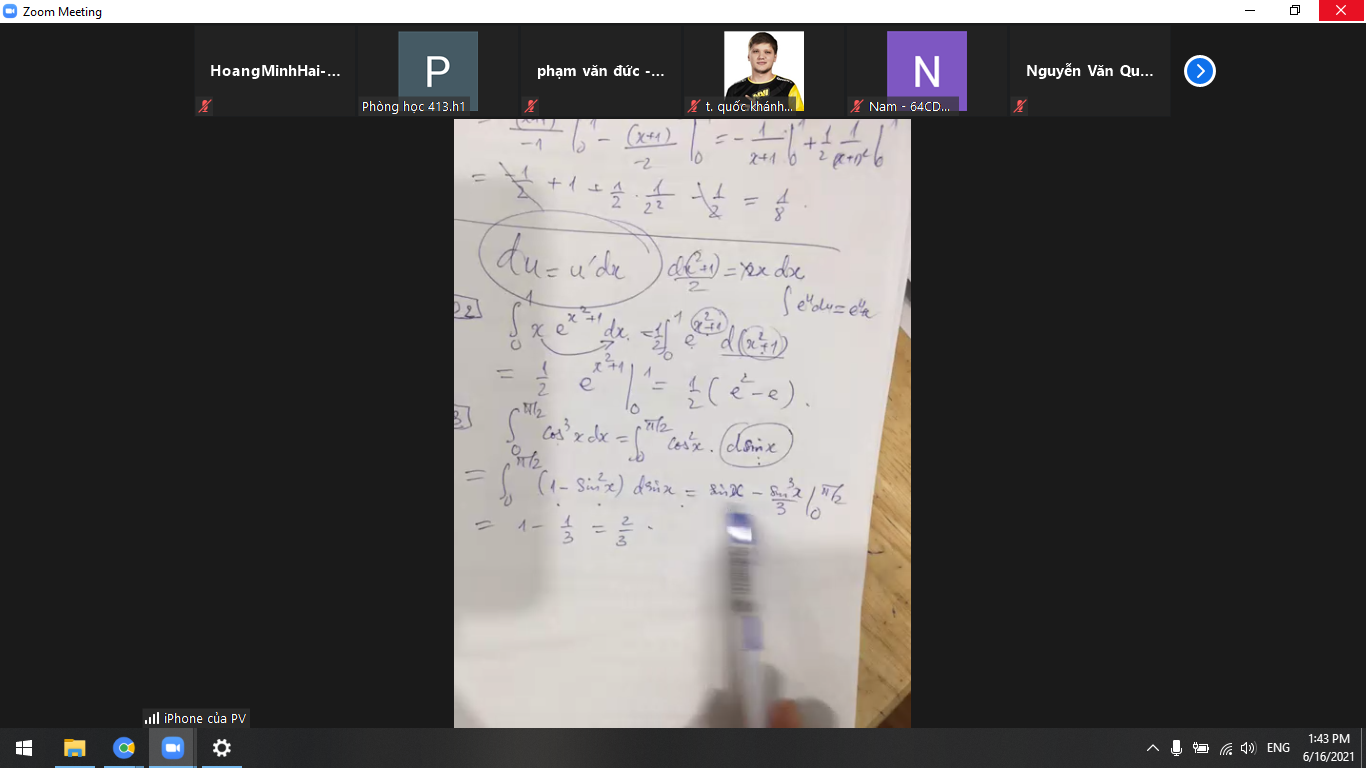 Zoom Meeting
HoangMinhHai-...
P
Phòng học 413.h1
phạm văn đức -...
t. quốc khánh...
N
Nam - 64CD...
Nguyễn Văn Qu...
= (x+1)/-1 |₀¹ - (x+1)/-2 |₀¹ = - 1/(x+1) |₀¹ + 1/2 1/(x+1)² |₀¹
= -1/2 + 1 + 1/2 · 1/2² - 1/2 = 1/8 .
du = u'dx d(x²+1)/2 = x dx
∫ eᵘdu = eᵘ
∫₀¹ x e^(x²+1) dx = 1/2 ∫₀¹ e^(x²+1) d(x²+1)
= 1/2 e^(x²+1) |₀¹ = 1/2 ( e² - e ) .
3. ∫₀^(π/2) cos³x dx = ∫₀^(π/2) cos²x . dsinx
= ∫₀^(π/2) (1 - sin²x) dsinx = sinx - sin³x/3 |₀^(π/2)
= 1 - 1/3 = 2/3 .
iPhone của PV
ENG
1:43 PM
6/16/2021